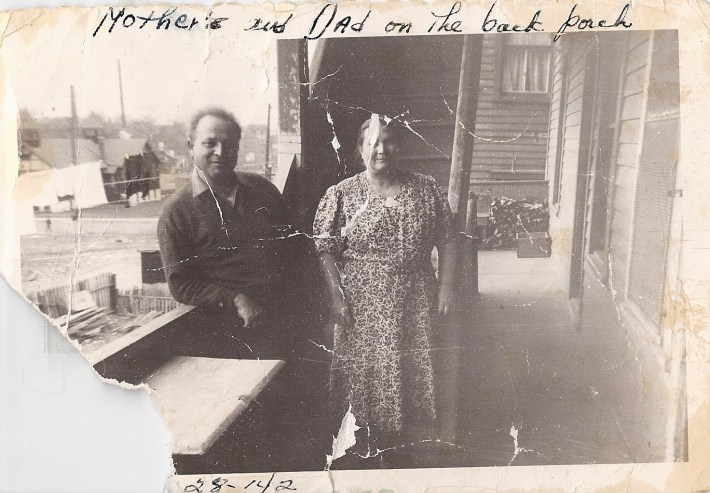 Mother and Dad on the back porch
28-142